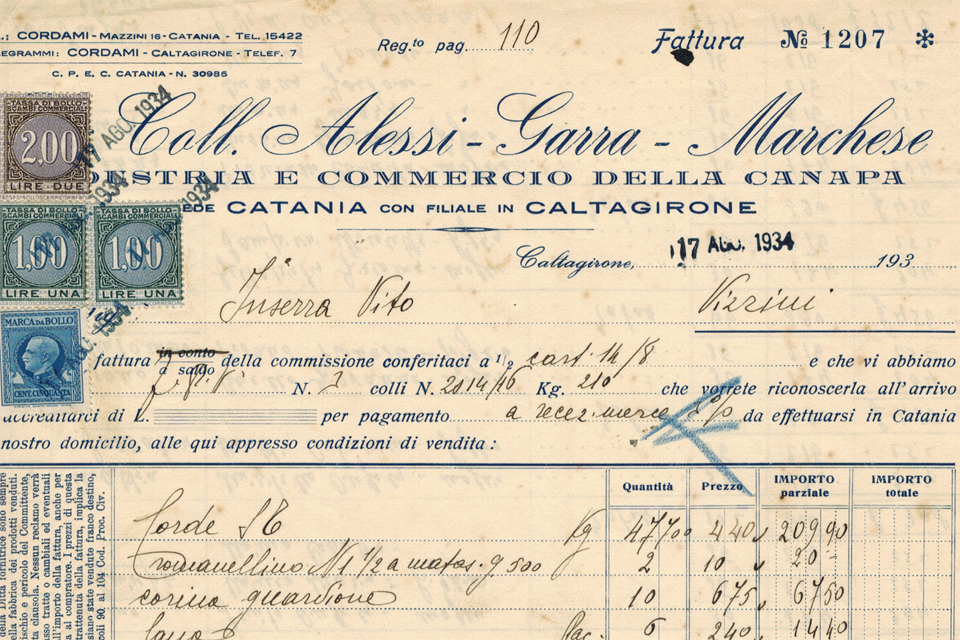 .: CORDAMI - MAZZINI 16 - CATANIA - TEL. 15422
LEGRAMMI: CORDAMI - CALTAGIRONE - TELEF. 7
C. P. E. C. CATANIA - N. 30985
Reg.to pag. 110
Fattura № 1207 *
TASSA DI BOLLO
SCAMBI COMMERCIALI
2,00
LIRE DUE
17 AGO. 1934
Coll. Alessi - Garra - Marchese
DUSTRIA E COMMERCIO DELLA CANAPA
EDE CATANIA CON FILIALE IN CALTAGIRONE
TASSA DI BOLLO
SCAMBI COMMERCIALI
1,00
LIRE UNA
TASSA DI BOLLO
SCAMBI COMMERCIALI
1,00
LIRE UNA
Caltagirone, 17 AGO. 1934 193
Inserra Vito Vizzini
MARCA DA BOLLO
CENT. CINQUANTA
fattura in conto della commissione conferitaci a 1/2 cart. 14/8 e che vi abbiamo
a saldo
N. colli N. 2814/16 Kg. 210 che vorrete riconoscerla all'arrivo
accreditarci di L. per pagamento a recez. merce da effettuarsi in Catania
nostro domicilio, alle qui appresso condizioni di vendita :
Quantità Prezzo IMPORTO parziale IMPORTO totale
Corde Kg 47,700 440 209 90
Romanellino N 1 1/2 a matas. g 500 2 10 20 -
corina guardione 10 675 67 50
6 240 14 40
della Ditta fornitrice sono sempre
ella fabbrica dei prodotti venduti.
ischio e pericolo del Committente,
ta clausola. Nessun reclamo verrà
asso tratte o cambiali ed eventuali
all'importo della fattura, anche per
al compratore. I prezzi di questa
trattenuta della fattura, implica la
siano state vendute franco destino,
coli 90 al 104 Cod. Proc. Civ.